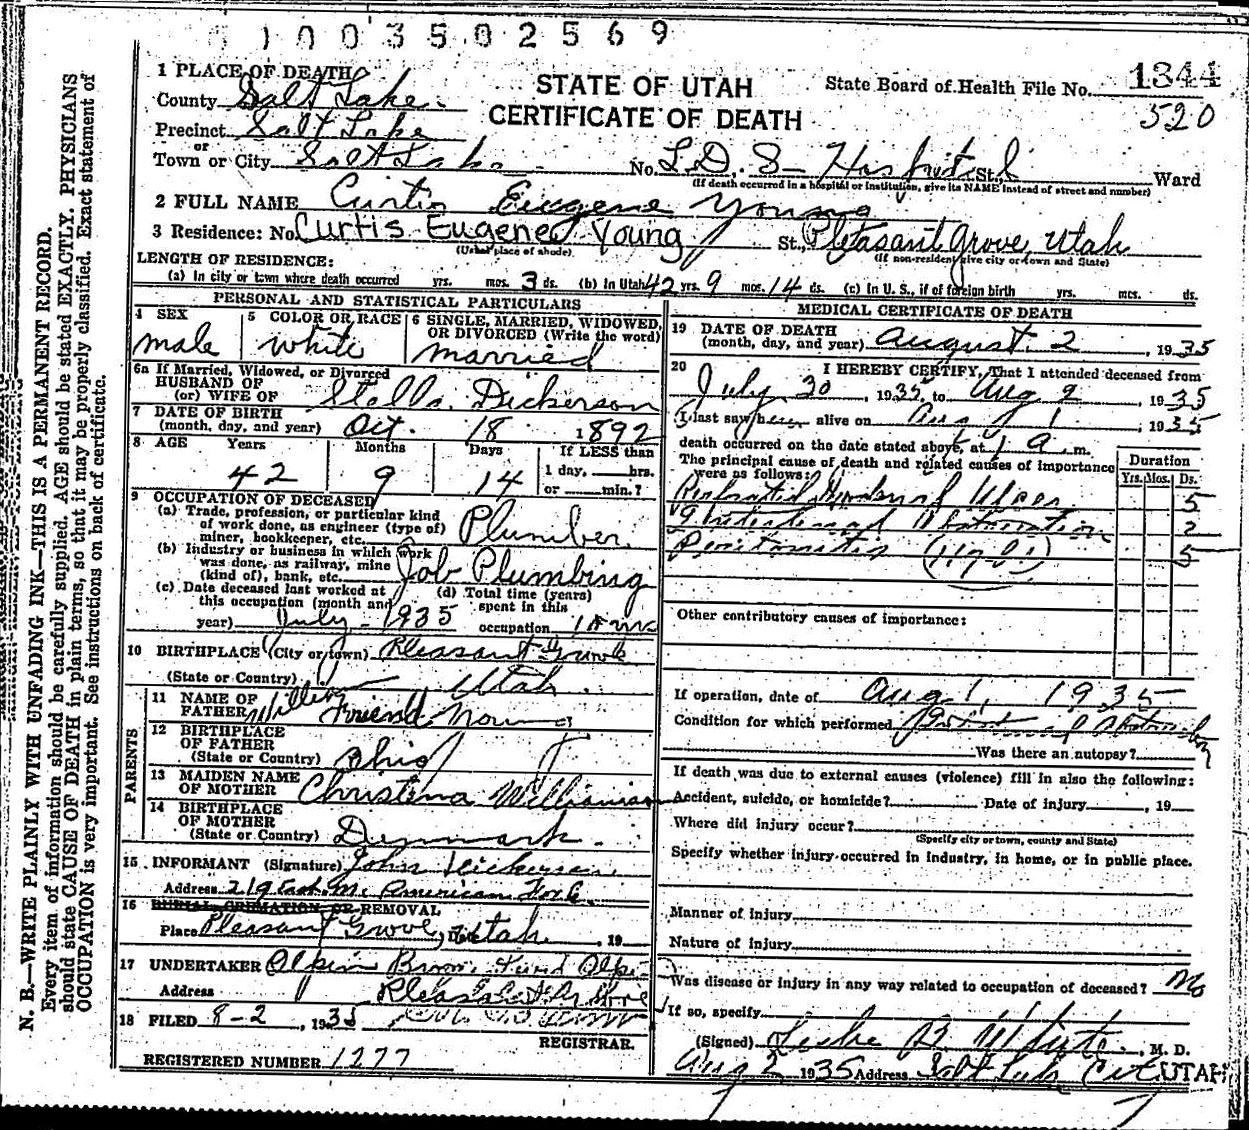 1 0 0 3 5 0 2 5 6 9
1 PLACE OF DEATH
STATE OF UTAH
CERTIFICATE OF DEATH
State Board of Health File No. 1344
520
County Salt Lake.
Precinct Salt Lake
or
Town or City Salt Lake No. L.D.S. Hospital St., Ward
(If death occurred in a hospital or institution, give its NAME instead of street and number)
2 FULL NAME Curtis Eugene Young
3 Residence: No. Curtis Eugene Young St., Pleasant Grove, Utah
(Usual place of abode) (If non-resident give city or town and State)
LENGTH OF RESIDENCE:
(a) In city or town where death occurred yrs. mos. 3 ds. (b) In Utah 42 yrs. 9 mos. 14 ds. (c) In U. S., if of foreign birth yrs. mos. ds.
PERSONAL AND STATISTICAL PARTICULARS
4 SEX
male
5 COLOR OR RACE
white
6 SINGLE, MARRIED, WIDOWED, OR DIVORCED (Write the word)
married
6a If Married, Widowed, or Divorced
HUSBAND OF
(or) WIFE OF Stella Dickerson
7 DATE OF BIRTH
(month, day, and year) Oct. 18 1892
8 AGE Years Months Days If LESS than
42 9 14 1 day, hrs.
or min.?
9 OCCUPATION OF DECEASED
(a) Trade, profession, or particular kind
of work done, as engineer (type of)
miner, bookkeeper, etc. Plumber.
(b) Industry or business in which work
was done, as railway, mine
(kind of), bank, etc. Job Plumbing
(c) Date deceased last worked at
this occupation (month and
year) July - 1935
(d) Total time (years)
spent in this
occupation
10 BIRTHPLACE (City or town) Pleasant Grove
(State or Country) Utah.
PARENTS
11 NAME OF
FATHER William Friend Young
12 BIRTHPLACE
OF FATHER
(State or Country) Ohio
13 MAIDEN NAME
OF MOTHER Christina Williamson
14 BIRTHPLACE
OF MOTHER
(State or Country) Denmark.
15 INFORMANT (Signature) John Dickerson
Address 219 East M. American Fork.
16 BURIAL, CREMATION OR REMOVAL
Place Pleasant Grove, Utah , 19
17 UNDERTAKER
Address Pleasant Grove
18 FILED 8-2 , 1935
REGISTRAR.
REGISTERED NUMBER 1277
MEDICAL CERTIFICATE OF DEATH
19 DATE OF DEATH
(month, day, and year) August 2 , 1935
20 I HEREBY CERTIFY, That I attended deceased from
July 30 , 1935, to Aug 2 , 1935
I last saw him alive on Aug 1 , 1935
death occurred on the date stated above, at 1 a .m.
The principal cause of death and related causes of importance
were as follows:
Duration
Yrs. Mos. Ds.
Perforated Duodenal Ulcer 5
Intestinal Obstruction 2
Peritonitis 5
Other contributory causes of importance:
If operation, date of Aug 1, 1935
Condition for which performed Intestinal Obstruction
Was there an autopsy?
If death was due to external causes (violence) fill in also the following:
Accident, suicide, or homicide? Date of injury , 19
Where did injury occur?
(Specify city or town, county and State)
Specify whether injury occurred in industry, in home, or in public place.
Manner of injury
Nature of injury
Was disease or injury in any way related to occupation of deceased? No
If so, specify
(Signed) Leslie B. White. , M. D.
Aug 2 1935 Address Salt Lake City UTAH
N. B.—WRITE PLAINLY WITH UNFADING INK—THIS IS A PERMANENT RECORD.
Every item of information should be carefully supplied. AGE should be stated EXACTLY. PHYSICIANS
should state CAUSE OF DEATH in plain terms, so that it may be properly classified. Exact statement of
OCCUPATION is very important. See instructions on back of certificate.